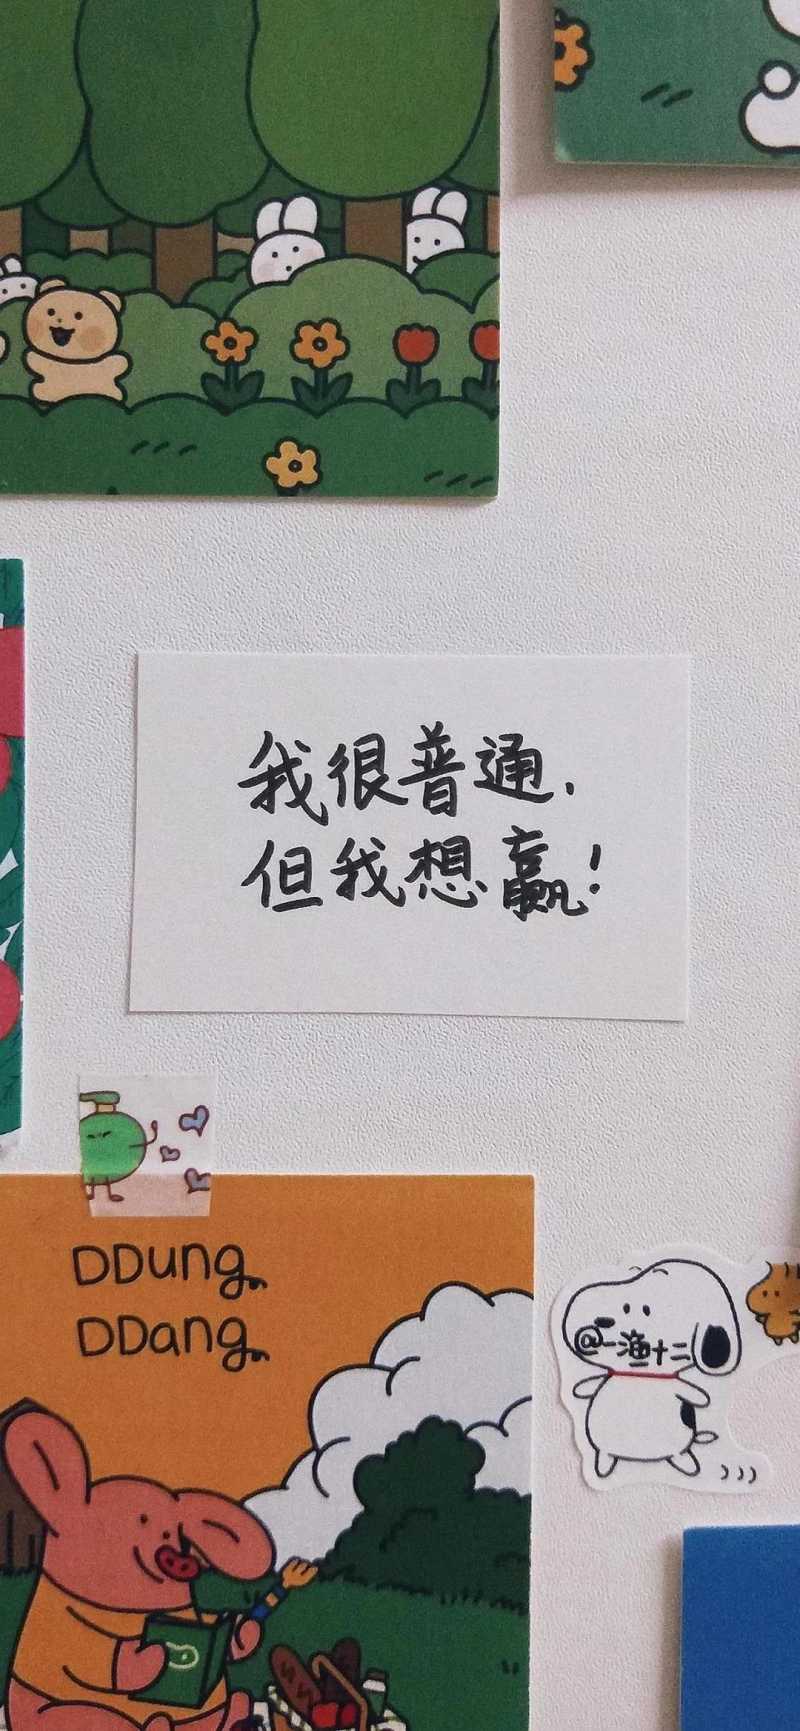 我很普通.
但我想赢!
DDung
DDang
@一渔十二